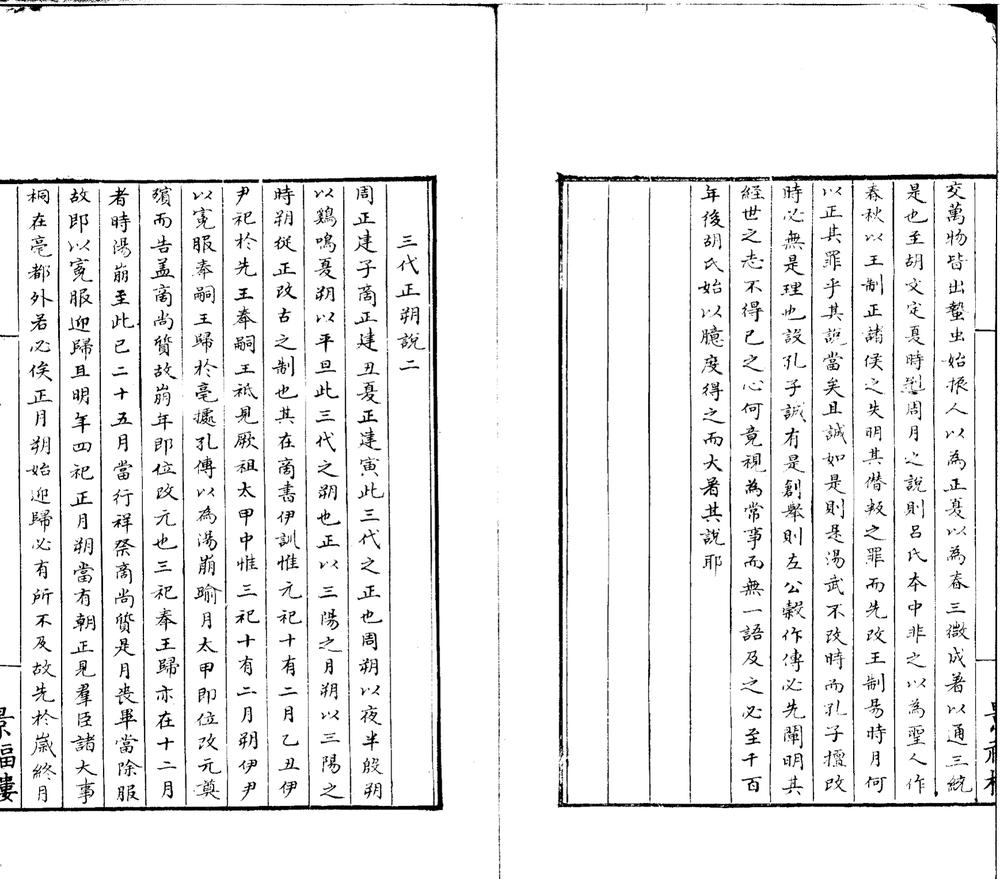 交萬物皆出蟄虫始振人以為正夏以為春三微成著以通三統
是也至胡文定夏時周月之說則呂氏本中非之以為聖人作
春秋以王制正諸侯之失明其僭叛之罪而先改王制易時月何
以正其罪乎其說當矣且誠如是則是湯武不改時而孔子擅改
時必無是理也設孔子誠有是創舉則左公穀作傳必先闡明其
經世之志不得已之心何竟視為常事而無一語及之必至千百
年後胡氏始以臆度得之而大著其說耶
三代正朔說二
周正建子商正建丑夏正建寅此三代之正也周朔以夜半殷朔
以鷄鳴夏朔以平旦此三代之朔也正以三陽之月朔以三陽之
時朔從正改古之制也其在商書伊訓惟元祀十有二月乙丑伊
尹祀於先王奉嗣王祗見厥祖太甲中惟三祀十有二月朔伊尹
以冕服奉嗣王歸於亳據孔傳以為湯崩踰月太甲即位改元奠
殯而告盖商尚質故崩年即位改元也三祀奉王歸亦在十二月
者時湯崩至此已二十五月當行祥祭商尚質是月喪畢當除服
故即以冕服迎歸且明年四祀正月朔當有朝正見羣臣諸大事
桐在亳都外若必俟正月朔始迎歸必有所不及故先於歲終月
景福樓